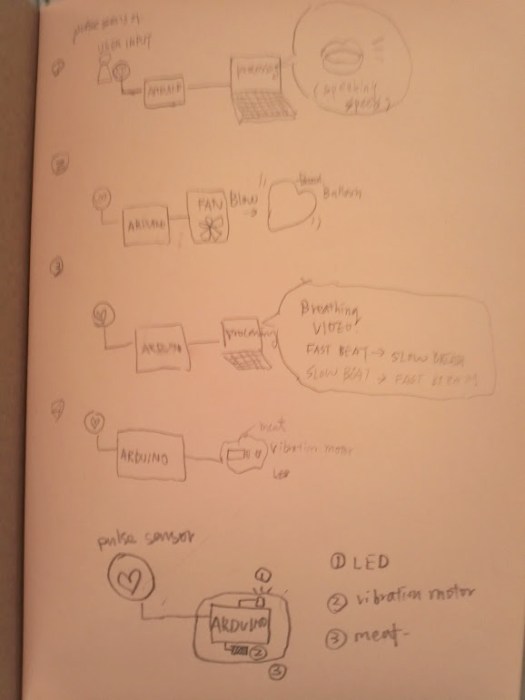 pulse sensor
USER INPUT
①
ARDUINO
processing
speed
②
ARDUINO
FAN
BLOW
Balloon
③
ARDUINO
processing
Breathing
VIDEO
FAST BEAT → SLOW BREATH
SLOW BEAT → FAST BREATH
④
ARDUINO
meat
vibration motor
LED
pulse sensor
①
ARDUINO
②
③
① LED
② vibration motor
③ meat